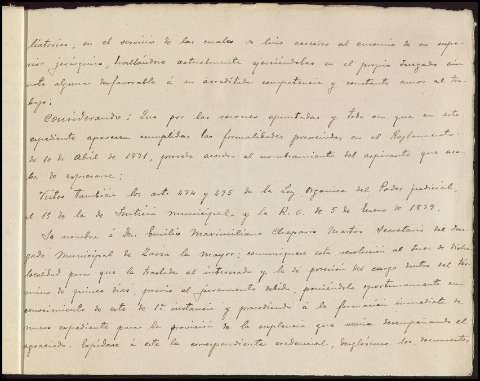 en el servicio de las cuales se hizo acreedor al ascenso de su supe-
rior jerárquico, hallándose actualmente ejerciéndolas en el propio Juzgado sin
nota alguna desfavorable á su acreditada competencia y constante amor al tra-
bajo;
Considerando: Que por las razones apuntadas y toda vez que en este
expediente aparecen cumplidas las formalidades prevenidas en el Reglamento
de 10 de Abril de 1871, procede acordar el nombramiento del aspirante que aca-
ba de expresarse;
Vistos tambien los art. 474 y 475 de la Ley Orgánica del Poder judicial,
el 15 de la de Justicia municipal, y la R. O. de 5 de Enero de 1879.
Se nombra á Dn. Emilio Maximiliano Chaparro Martos Secretario del Juz-
gado Municipal de la mayor; comuníquese esta resolución al Juez de dicha
localidad para que la traslade al interesado y le dé posesión del cargo dentro del tér-
mino de quince dias previo el juramento debido, poniéndolo oportunamente en
conocimiento de este de 1ª instancia y procediendo á la formación inmediata de
nuevo expediente para la provisión de la suplencia que venia desempeñando el
agraciado. Expídase á este la correspondiente credencial, los documentos